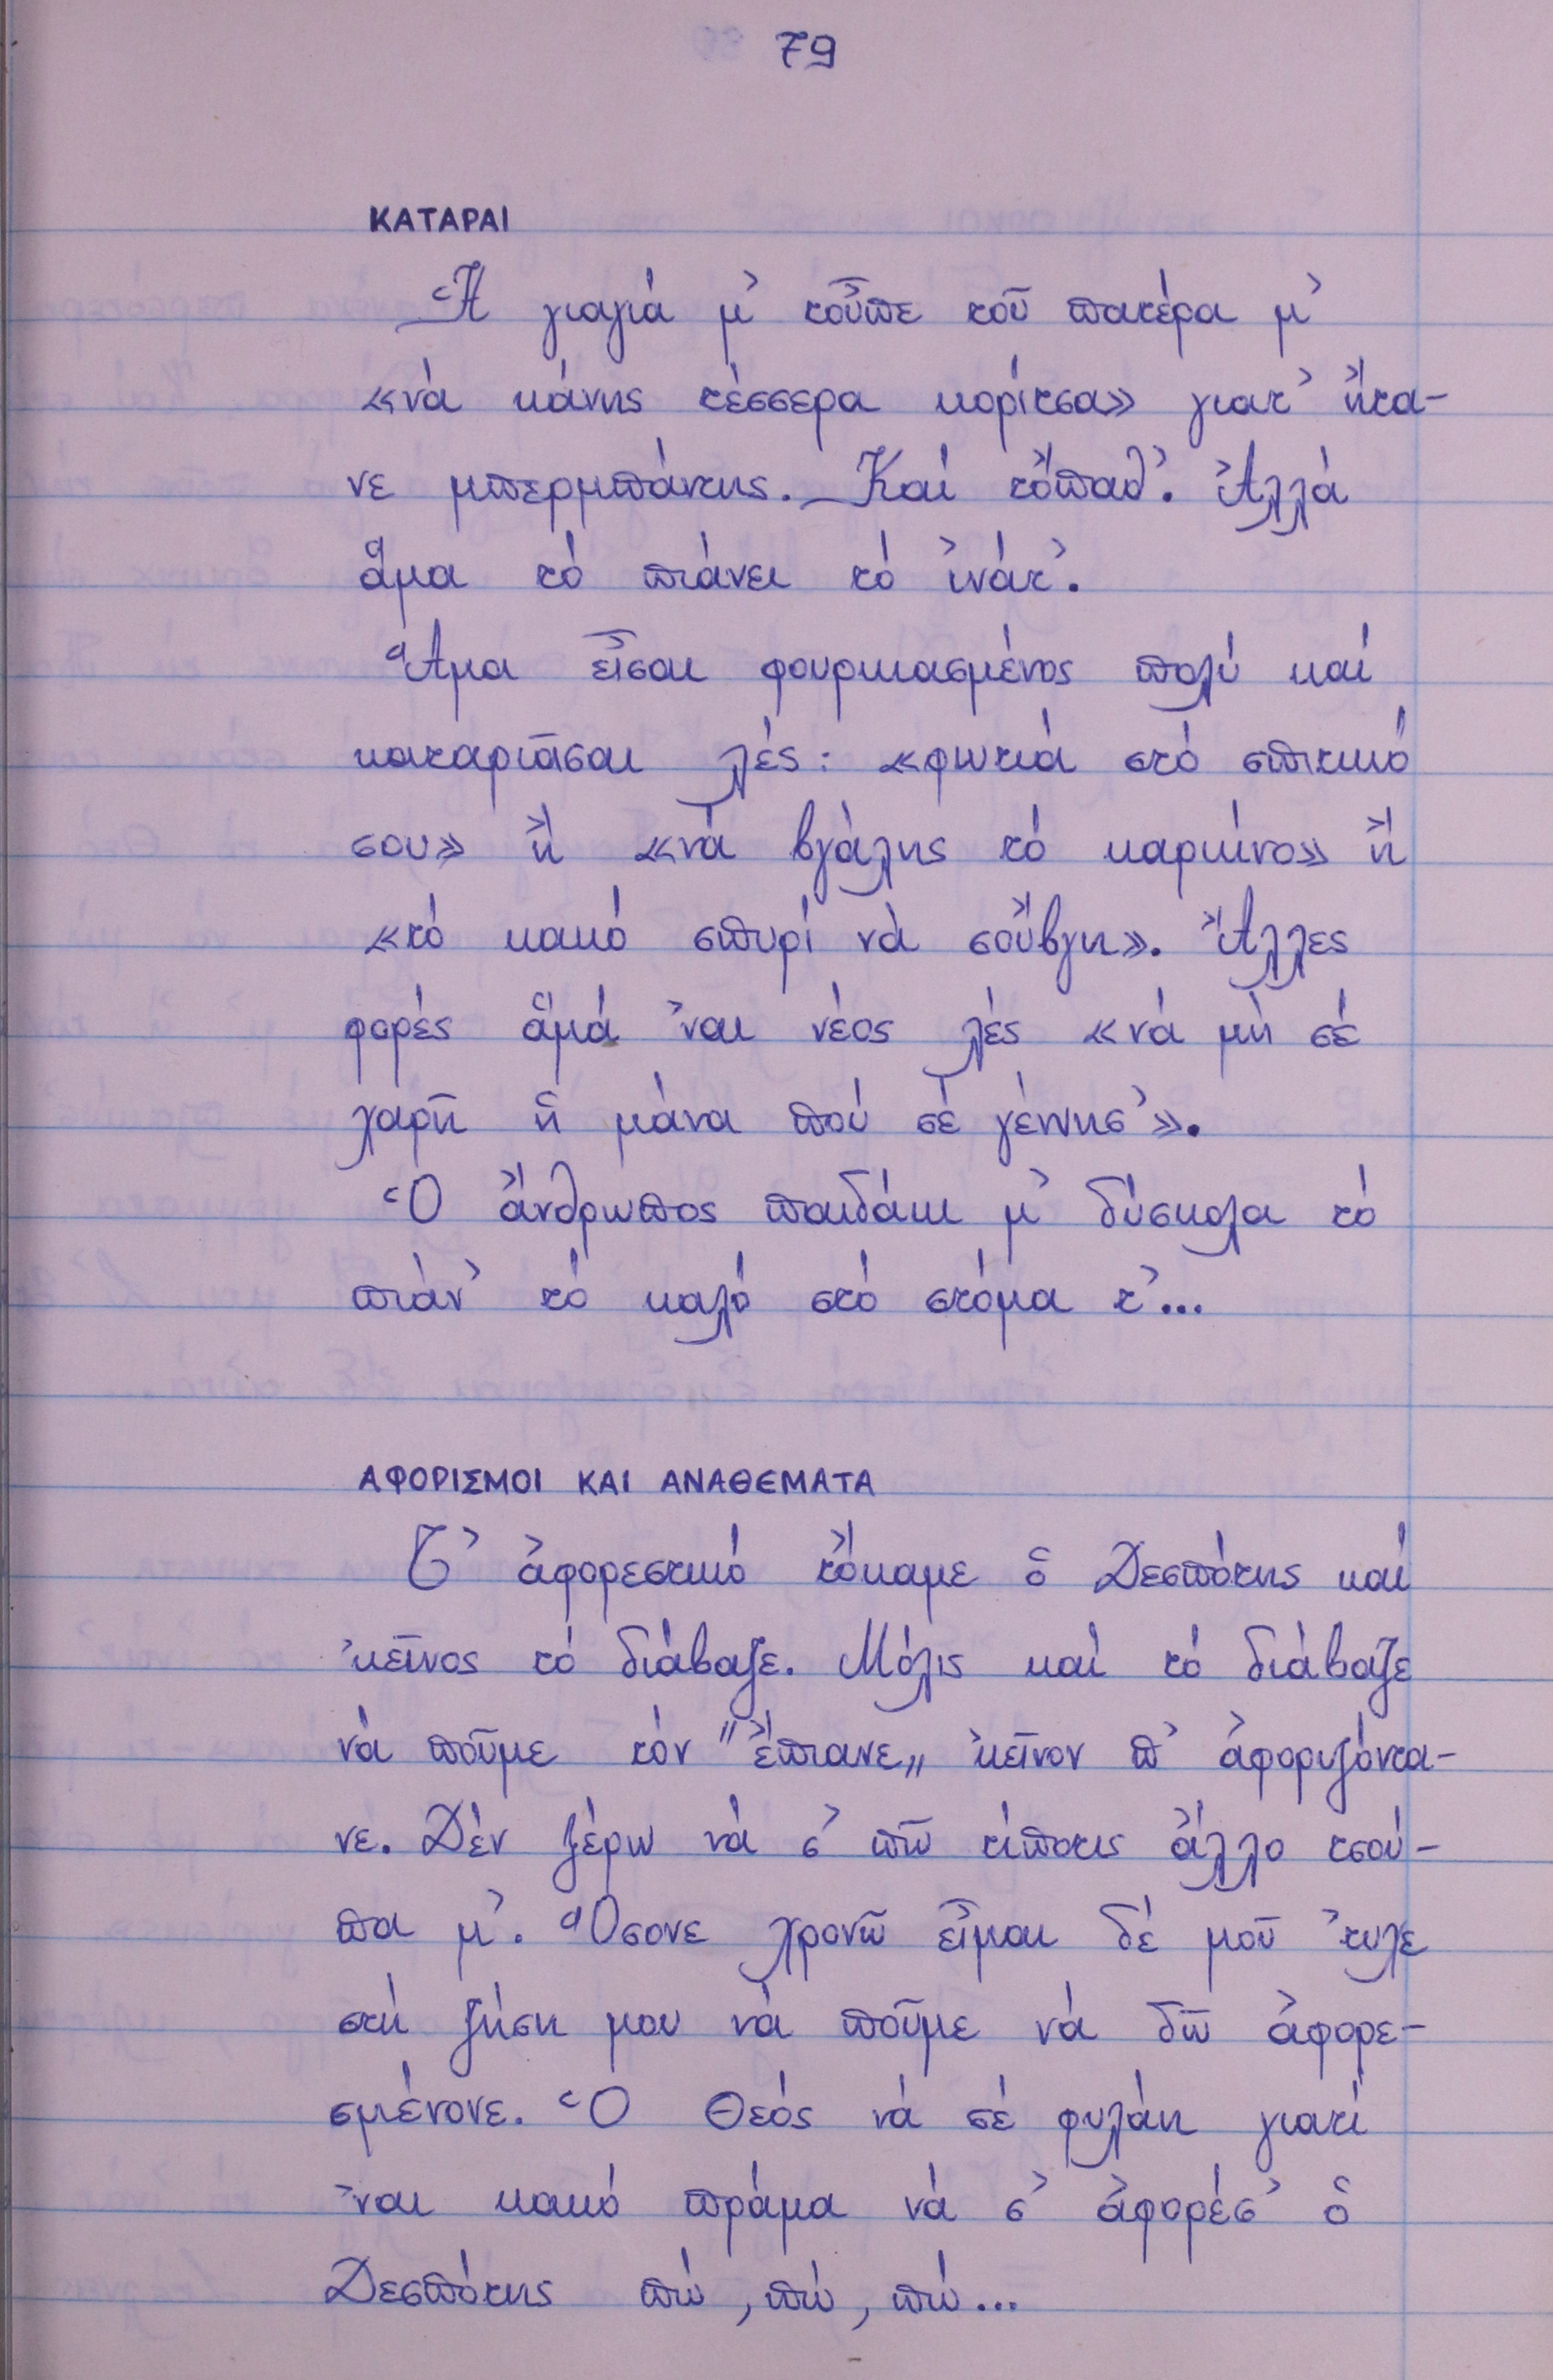 79
ΚΑΤΑΡΑΙ
Ἡ γιαγιά μ' τοὖπε τοῦ πατέρα μ'
«νά κάνης τέσσερα κορίτσα» γιατ' ἤτα-
νε μπερμπάντης. Καί τὄπαθ'. Ἀλλά
ἅμα τό πιάνει τό ἰνάτ'.
Ἅμα εἶσαι φουρκιασμένος πολύ καί
καταριᾶσαι λές: «φωτιά στό σπιτικό
σου» ἤ «νά βγάλης τό καρκίνο» ἤ
«τό κακό σπυρί νά σοὔβγη». Ἄλλες
φορές ἅμά 'ναι νέος λές «νά μή σέ
χαρῆ ἡ μάνα πού σέ γέννησ'».
Ὁ ἄνθρωπος παιδάκι μ' δύσκολα τό
πιάν' τό καλό στό στόμα τ'...
ΑΦΟΡΙΣΜΟΙ ΚΑΙ ΑΝΑΘΕΜΑΤΑ
Τ' ἀφορεστικό τὄκαμε ὁ Δεσπότης καί
'κεῖνος τό διάβαζε. Μόλις καί τό διάβαζε
νά ποῦμε τόν "ἔπιανε„ 'κεῖνον π' ἀφοριζόντα-
νε. Δέν ξέρω νά σ' πῶ τίποτις ἄλλο τσού-
πα μ'. Ὅσονε χρονῶ εἶμαι δέ μοῦ 'τυχε
στή ζήση μου νά ποῦμε νά δῶ ἀφορε-
σμένονε. Ὁ Θεός νά σέ φυλάη γιατί
'ναι κακό πράμα νά σ' ἀφορέσ' ὁ
Δεσπότης πώ, πώ, πώ...